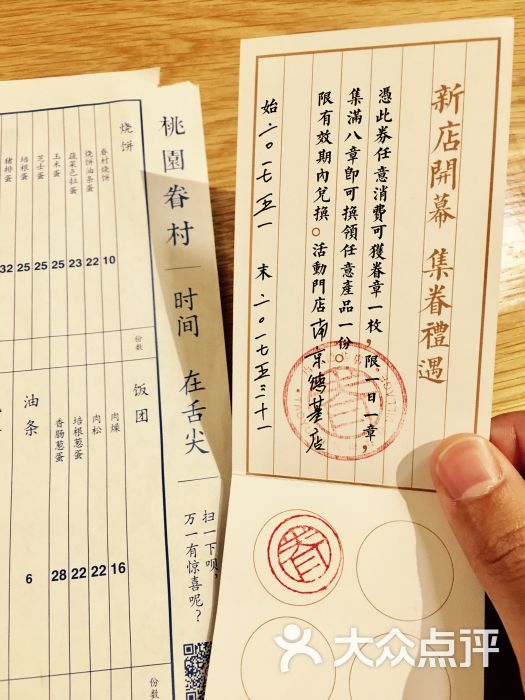 新店開幕 集眷禮遇
憑此券任意消費可獲眷章一枚，限一日一章，
集滿八章即可換領任意產品一份。
限有效期內兌換。活動門店 南京德基店
始 二〇一七五一 末 二〇一七五三十一
眷
眷
桃園眷村 时间 在舌尖
扫一下呗，
万一有惊喜呢？
烧饼
眷村烧饼 10
烧饼油条 22
蔬菜色拉蛋 23
玉米蛋 25
芝士蛋 25
培根蛋 25
猪排蛋 32
份数
饭团
肉燥 16
肉松 22
培根葱蛋 22
香肠葱蛋 28
油条 6
份数
大众点评